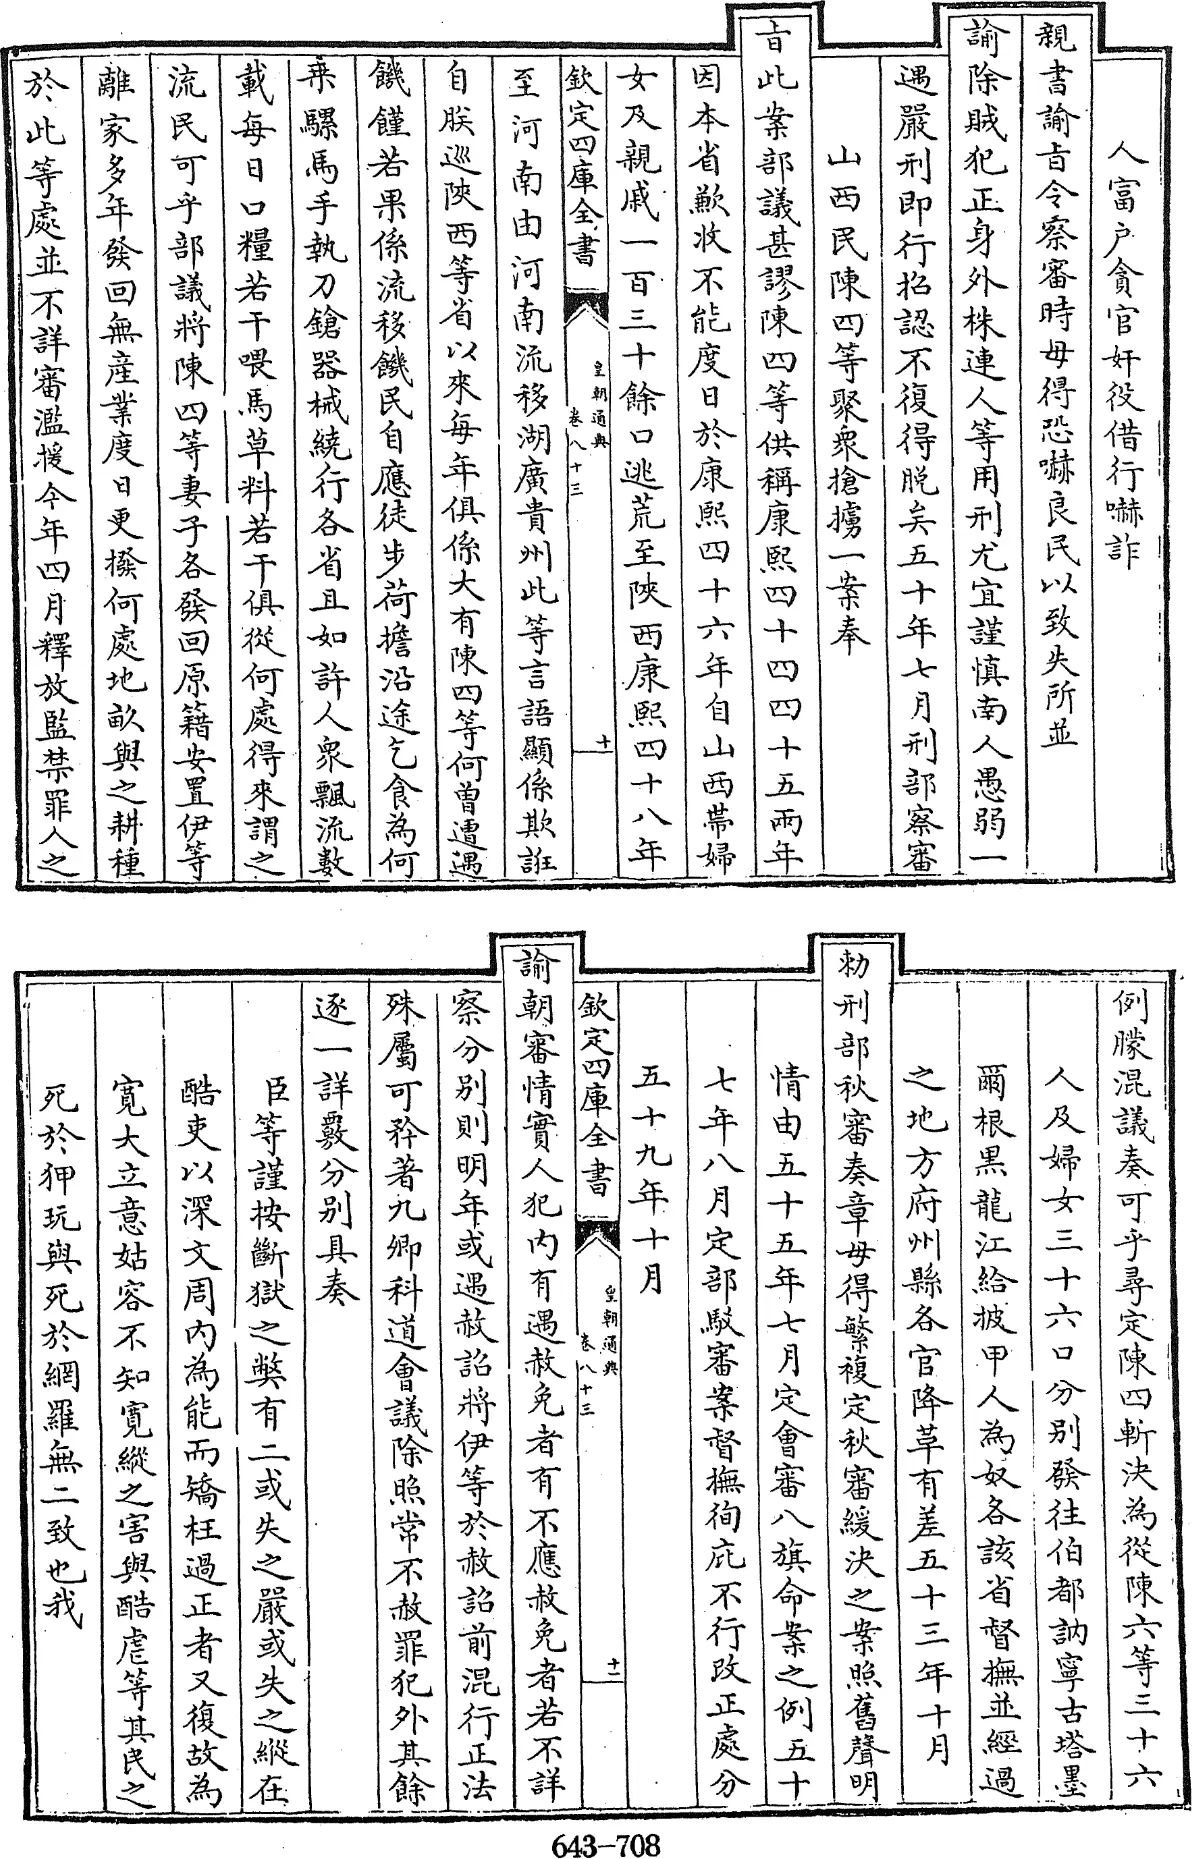 人富戸貪官奸役借行嚇詐
親書諭㫖令察審時毋得恐嚇良民以致失所並
諭除賊犯正身外株連人等用刑尤宜謹慎南人愚弱一
遇嚴刑即行招認不復得脱矣五十年七月刑部察審
山西民陳四等聚衆搶擄一案奉
㫖此案部議甚謬陳四等供稱康熙四十四四十五兩年
因本省歉收不能度日於康熙四十六年自山西帶婦
女及親戚一百三十餘口逃荒至陝西康熙四十八年
欽定四庫全書
皇朝通典
卷八十三
十
至河南由河南流移湖廣貴州此等言語顯係欺誑
自朕巡陝西等省以來每年俱係大有陳四等何曾遭遇
饑饉若果係流移饑民自應徒步荷擔沿途乞食為何
乘騾馬手執刀鎗器械繞行各省且如許人衆飄流數
載每日口糧若干喂馬草料若干俱從何處得來謂之
流民可乎部議將陳四等妻子各發回原籍安置伊等
離家多年發回無産業度日更撥何處地畝與之耕種
於此等處並不詳審濫援今年四月釋放監禁罪人之
例朦混議奏可乎尋定陳四斬決為從陳六等三十六
人及婦女三十六口分别發往伯都訥寧古塔墨
爾根黒龍江給披甲人為奴各該省督撫並經過
之地方府州縣各官降革有差五十三年十月
勅刑部秋審奏章毋得繁複定秋審緩決之案照舊聲明
情由五十五年七月定會審八旗命案之例五十
七年八月定部駁審案督撫徇庇不行改正處分
五十九年十月
欽定四庫全書
皇朝通典
卷八十三
十一
諭朝審情實人犯内有遇赦免者有不應赦免者若不詳
察分别則明年或遇赦詔將伊等於赦詔前混行正法
殊屬可矜著九卿科道會議除照常不赦罪犯外其餘
逐一詳覈分别具奏
臣等謹按斷獄之弊有二或失之嚴或失之縱在
酷吏以深文周内為能而矯枉過正者又復故為
寛大立意姑容不知寛縱之害與酷虐等其民之
死於狎玩與死於網羅無二致也我
643-708